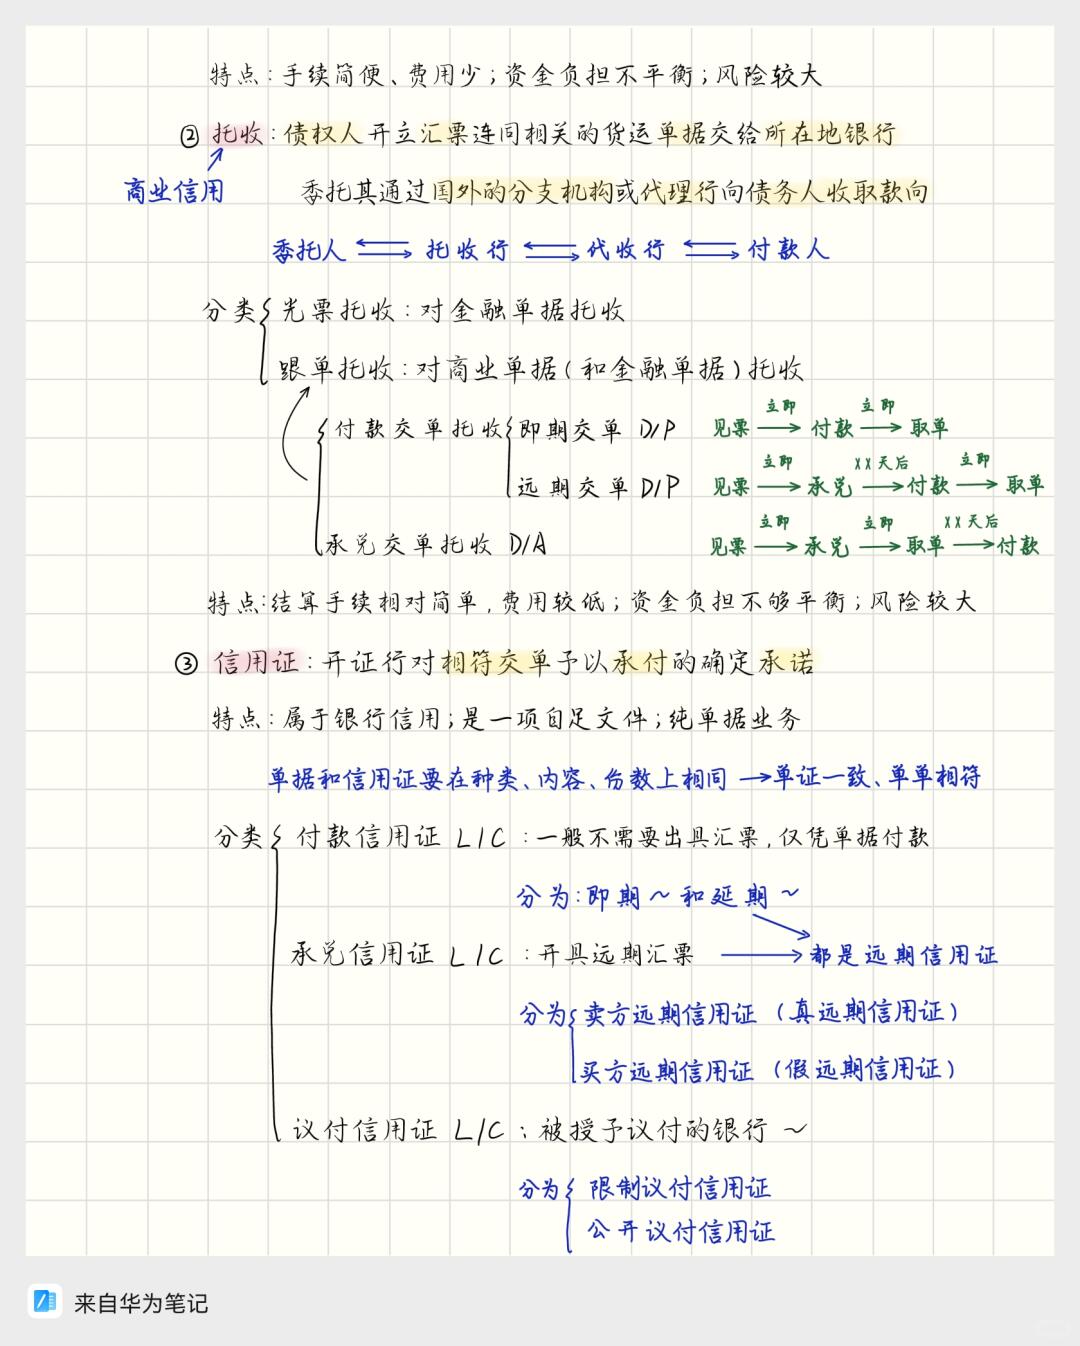 特点：手续简便、费用少；资金负担不平衡；风险较大
② 托收：债权人开立汇票连同相关的货运单据交给所在地银行
商业信用 委托其通过国外的分支机构或代理行向债务人收取款向
委托人 ⇄ 托收行 ⇄ 代收行 ⇄ 付款人
分类 光票托收：对金融单据托收
跟单托收：对商业单据(和金融单据)托收
立即 立即
付款交单托收 即期交单 D/P 见票 → 付款 → 取单
立即 XX天后 立即
远期交单 D/P 见票 → 承兑 → 付款 → 取单
立即 立即 XX天后
承兑交单托收 D/A 见票 → 承兑 → 取单 → 付款
特点:结算手续相对简单,费用较低；资金负担不够平衡；风险较大
③ 信用证：开证行对相符交单予以承付的确定承诺
特点：属于银行信用；是一项自足文件；纯单据业务
单据和信用证要在种类、内容、份数上相同 → 单证一致、单单相符
分类 付款信用证 L/C：一般不需要出具汇票,仅凭单据付款
分为:即期～和延期～
承兑信用证 L/C：开具远期汇票 → 都是远期信用证
分为 卖方远期信用证（真远期信用证）
买方远期信用证（假远期信用证）
议付信用证 L/C；被授予议付的银行～
分为 限制议付信用证
公开议付信用证
来自华为笔记